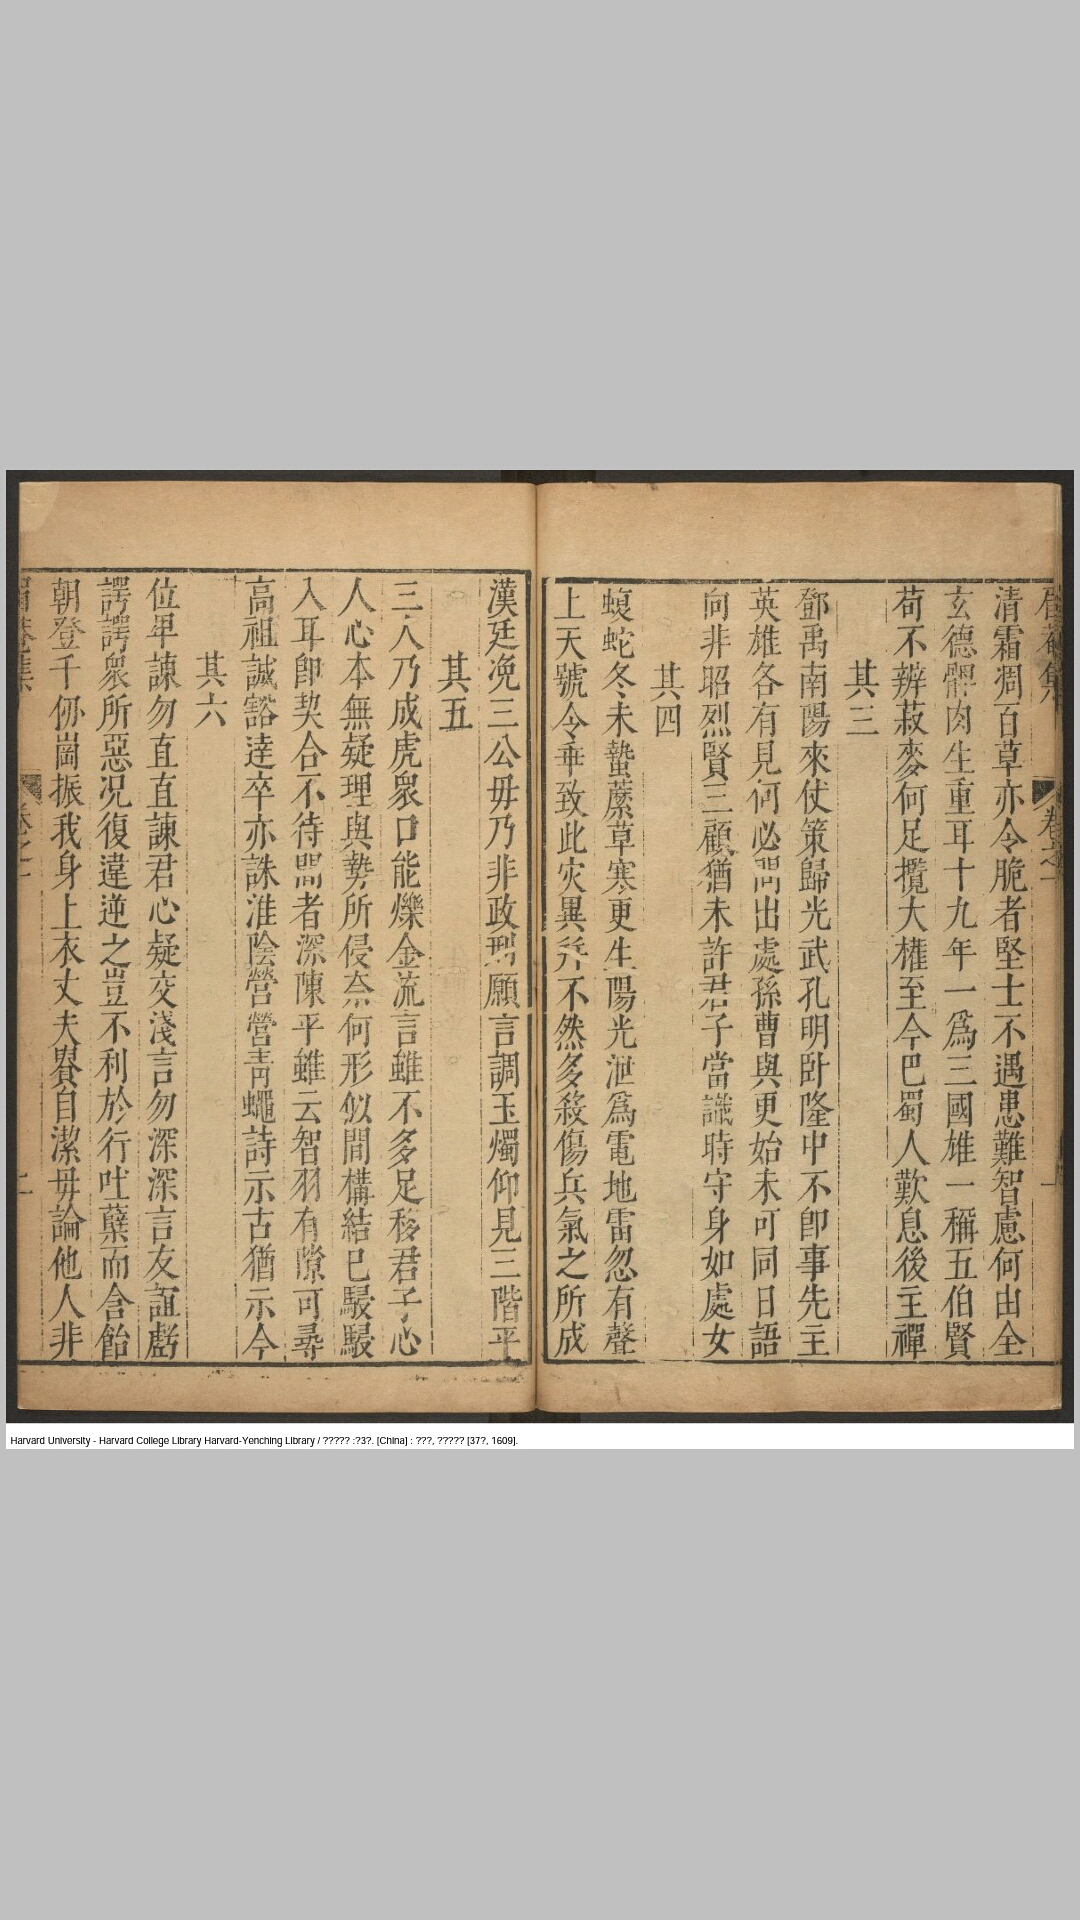 清霜凋百草亦令脆者堅士不遇患難智慮何由全
玄德髀肉生重耳十九年一爲三國雄一稱五伯賢
苟不辨菽麥何足攬大權至今巴蜀人歎息後主禪
其三
鄧禹南陽來仗策歸光武孔明卧隆中不卽事先主
英雄各有見何必問出處孫曹與更始未可同日語
向非昭烈賢三顧猶未許君子當識時守身如處女
其四
蝮蛇冬未蟄蘪草寒更生陽光泄爲電地雷忽有聲
上天號令乖致此灾異幷不然多殺傷兵氣之所成
漢廷免三公毋乃非政刑願言調玉燭仰見三階平
其五
三人乃成虎衆口能爍金流言雖不多足移君子心
人心本無疑理與勢所侵奈何形似間構結已駸駸
入耳卽契合不待聞者深陳平雖云智羽有隙可尋
高祖誠豁達卒亦誅淮陰營營青蠅詩示古猶示今
其六
位卑諫勿直直諫君心疑交淺言勿深深言友誼虧
諤諤衆所惡况復違逆之豈不利於行吐蘗而含飴
朝登千仞崗振我身上衣丈夫貴自潔毋論他人非
卷之一
Harvard University - Harvard College Library Harvard-Yenching Library / ????? :?3?. [China] : ???, ????? [37?, 1609].